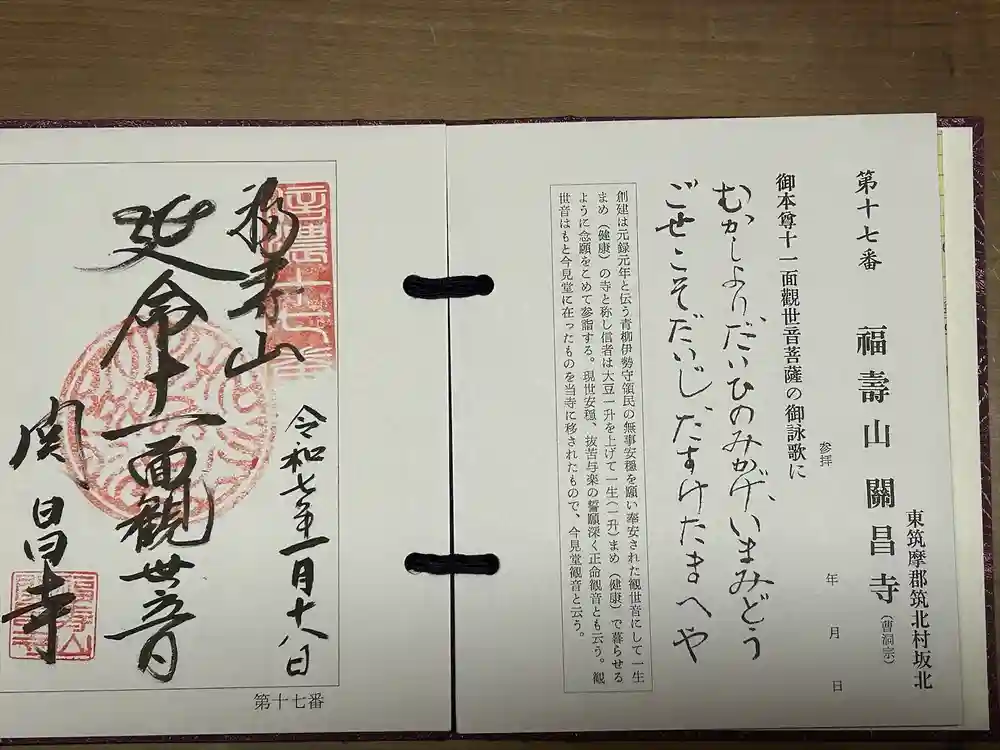 東筑摩郡筑北村坂北
第十七番 福壽山 關昌寺(曹洞宗)
参拝 年 月 日
御本尊十一面觀世音菩薩の御詠歌に
むかしより、だいひのみかげ、いまみどう
ごせこそだいじ たすけたまへや
創建は元録元年と伝う青柳伊勢守領民の無事安穏を願い奉安された観世音にして一生
まめ(健康)の寺と称し信者は大豆一升を上げて一生(一升)まめ(健康)で暮らせる
ように念願をこめて参詣する。現世安穏、抜苦与楽の誓願深く正命観音とも云う。観
世音はもと今見堂に在ったものを当寺に移されたもので、今見堂観音と云う。
令和七年一月十八日
福寿山
延命十一面観世音
関昌寺
第十七番